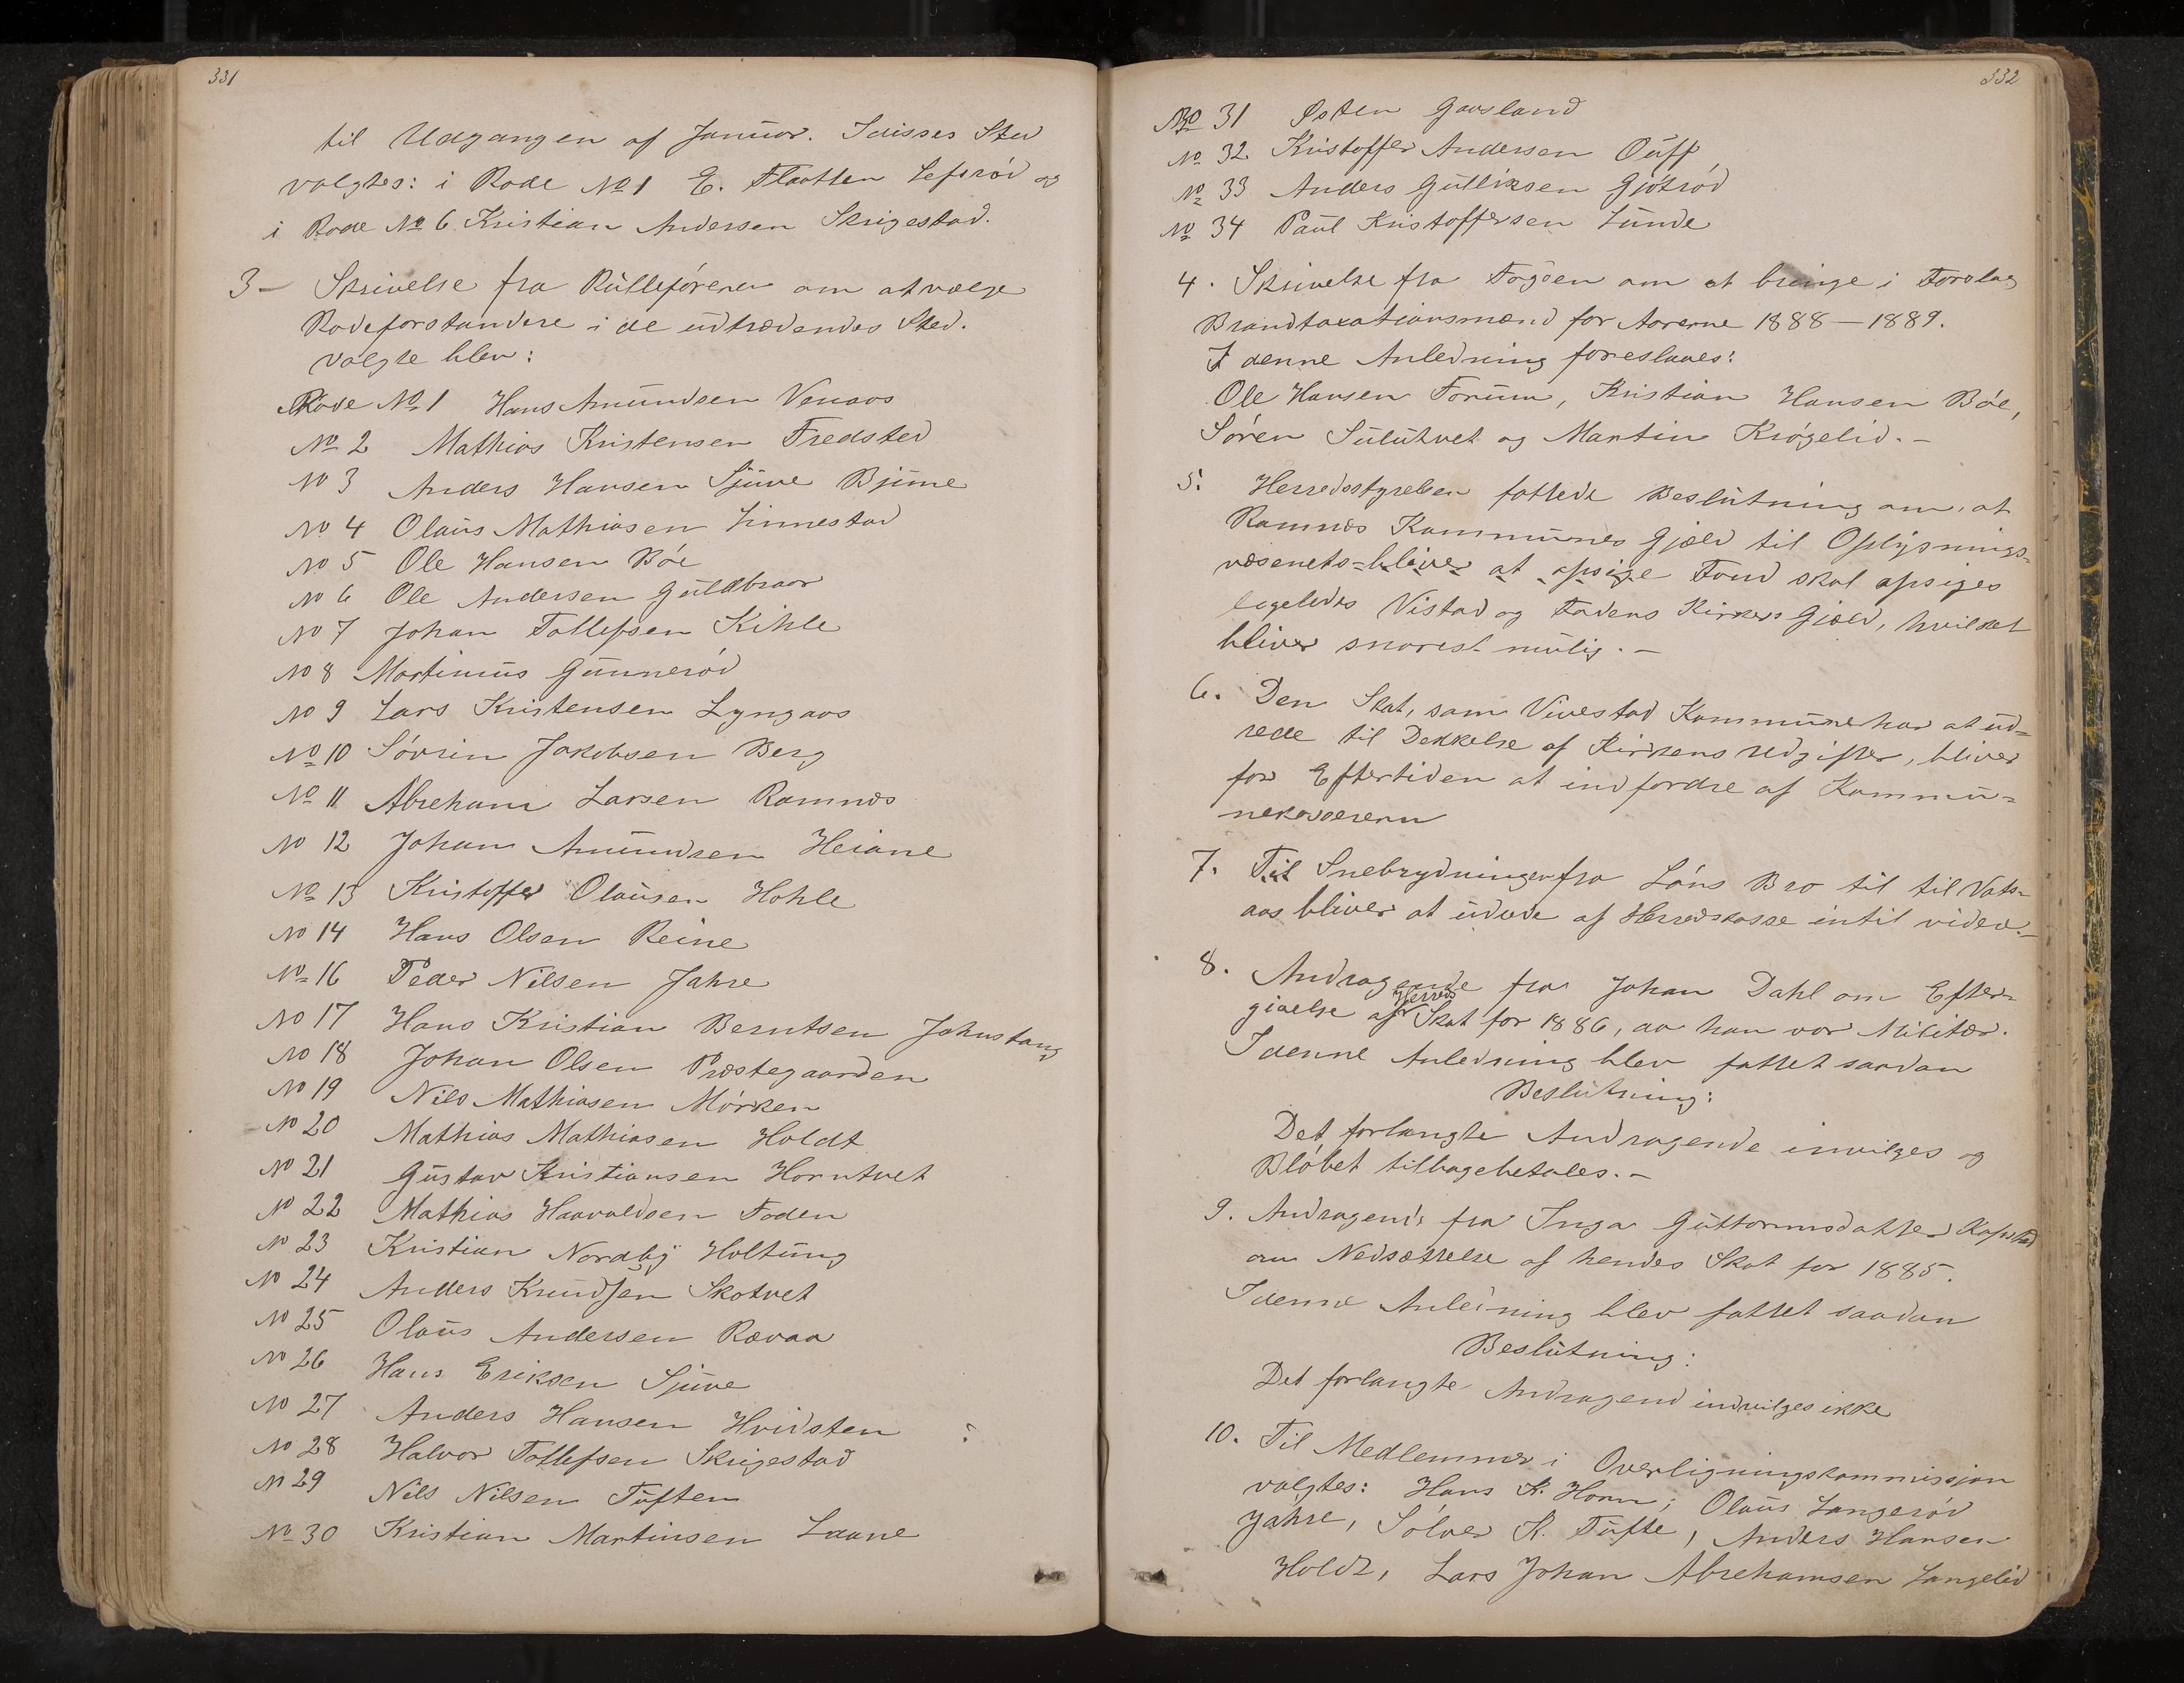 331
til Udgangen af Januar. I disses Sted
valgtes: i Rode No 1 E. Flaatten Lefsrød og
i Rode No 6 Kristian Andersen Skrigestad.
3- Skrivelse fra Rülleføreren om at vælge
Rodeforstandere i de üdtrædendes Sted.
Valgte blev:
Rode No 1 Hans Amündsen Venaas
No 2 Mathias Kristensen Fredsted
No 3 Anders Hansen Sjüve Bjüne
No 4 Olaüs Mathiasen Linnestad
No 5 Ole Hansen Bøe
No 6 Ole Andersen Güldbraar
No 7 Johan Tollefsen Kihle
No 8 Martinius Günnerød
No 9 Lars Kristensen Lyngaas
No 10 Søvrin Jakobsen Berg
No 11 Abreham Larsen Ramnæs
No 12 Johan Amündsen Heiane
No 13 Kristoffer Olaüsen Hohle
No 14 Hans Olsen Reine
No 16 Peder Nilsen Jahre
No 17 Hans Kristian Berntsen Jahnstang
No 18 Johan Olsen Præstegaarden
No 19 Nils Mathiasen Mørken
No 20 Mathias Mathiasen Holdt
No 21 Güstav Kristiansen Horntvet
No 22 Mathias Haavaldsen Faden
No 23 Kristian Nordby Holtüng
No 24 Anders Knudsen Skotvet
No 25 Olaüs Andersen Rævaa
No 26 Hans Eriksen Sjüve
No 27 Anders Hansen Hvidsten
No 28 Halvor Tollefsen Skrigestad
No 29 Nils Nilsen Tüften
No 30 Kristian Martinsen Laane
332
No 31 Østen Gavsland
No 32 Kristoffer Andersen Oüff
No 33 Anders Gülliksen Gjøtrød
No 34 Paül Kristoffersen Lünde
4. Skrivelse fra Fogden om at bringe i Forslag
Brandtaxationsmænd for Aarene 1888-1889.
I denne Anledning foreslaaes:
Ole Hansen Forüm, Kristian Hansen Bøe,
Søren Sülütvet og Martin Krøgelid.-
5. Herredsstyrelsen fattede Beslütning om, at
Ramnæs Kommünes Gjæld til Oplysnings-
væsenets=bliver at opsige Fond skal opsiges
ligeledes Vistad og Fadens Kirkers Gjæld, hvilket
bliver snarest mülig.-
6. Den Skat, som Vivestad Kommüne har at üd-
rede til Dækkelse af Kirkens Udgifter, bliver
for Eftertiden at indfordre af Kommü-
nekasseren
7. Til Snebrydningen fra Løns Bro til til Vats-
aas bliver at üdrede af Herredskasse intil videre.-
8. Andragende fra Johan Dahl om Efter-
givelse af Herreds Skat for 1886, aa han var Militær.
I denne Anledning blev fattet saadan
Beslütning:
Det forlangte Andragende invilges og
Bløbet tilbagebetales.-
9. Andragende fra Inga Güttormsdatter Kapstad
om Nedsættelse af hendes Skat for 1885.
I denne Anledning blev fattet saadan
Beslütning:
Det forlangte Andragend indvilges ikke
10. Til Medlemmer i Overligningskommissjon
valgtes: Hans K. Horn; Olaüs Langerød
Jahre, Sølver K. Tüfte, Anders Hansen
Holdt, Lars Johan Abrehamsen Langelid